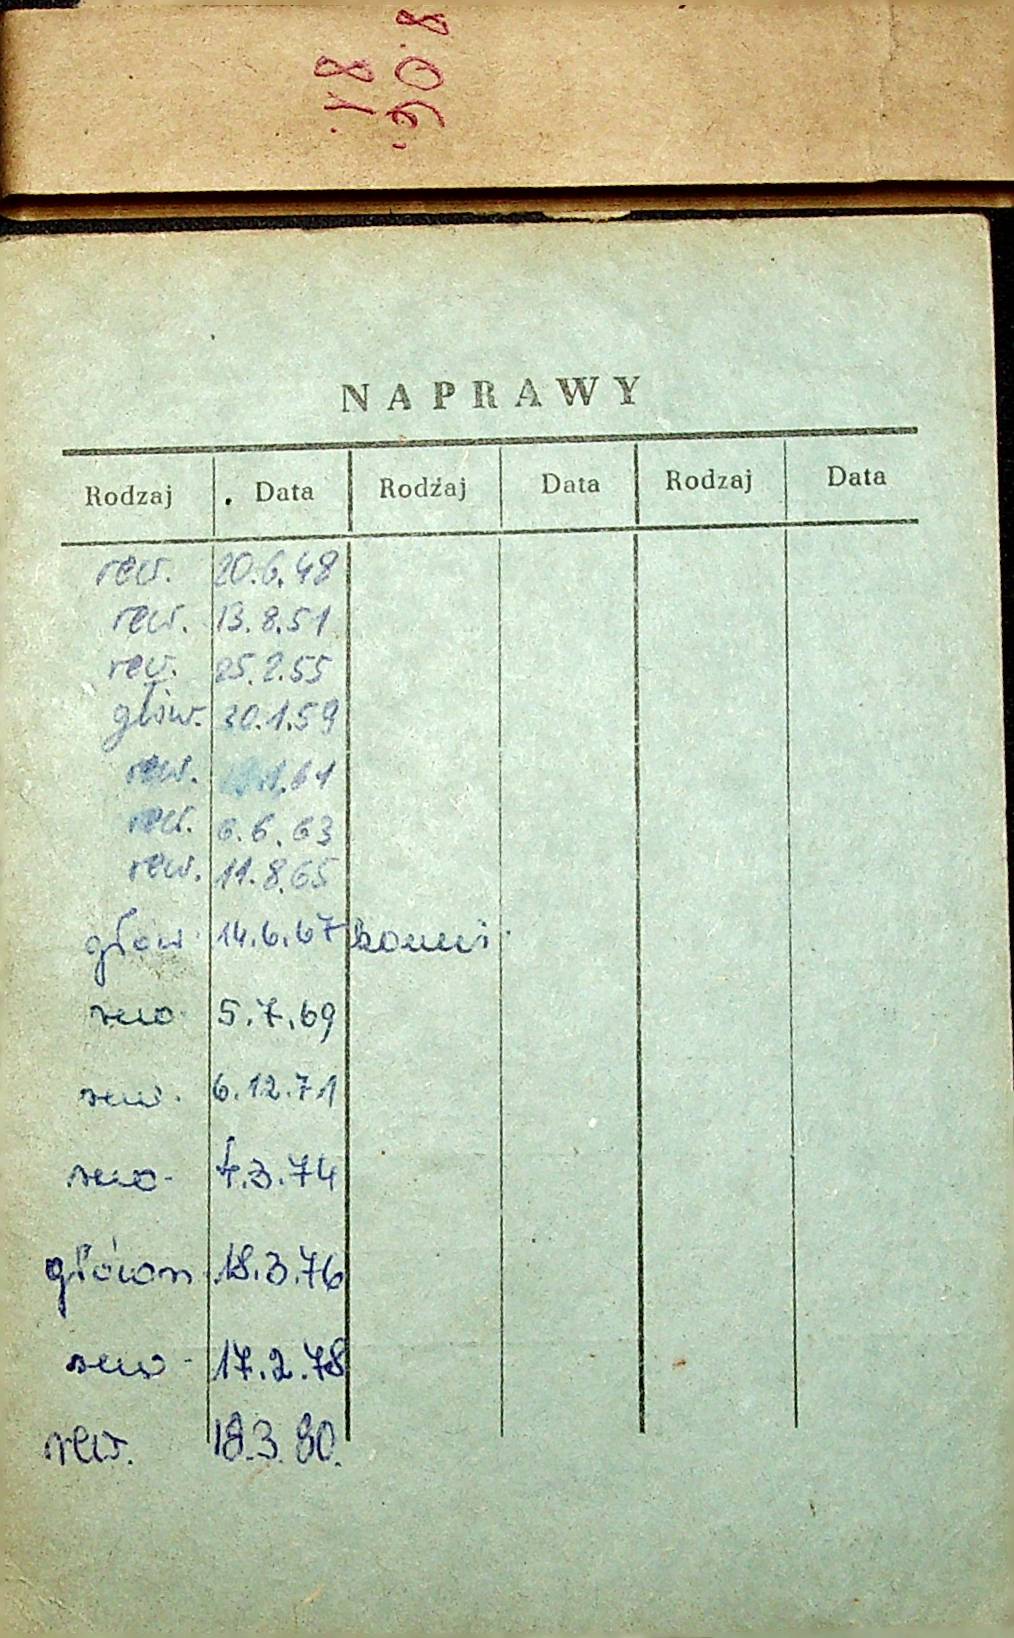 NAPRAWY
Rodzaj Data Rodzaj Data Rodzaj Data
rew. 20.6.48
rew. 13.8.51
rew. 25.2.55
głów. 30.1.59
rew. 61
rew. 6.6.63
rew. 11.8.65
głów. 14.6.67
rew. 5.7.69
rew. 6.12.71
rew. 4.3.74
główn 18.3.76
rew. 17.2.78
rew. 18.3.80.